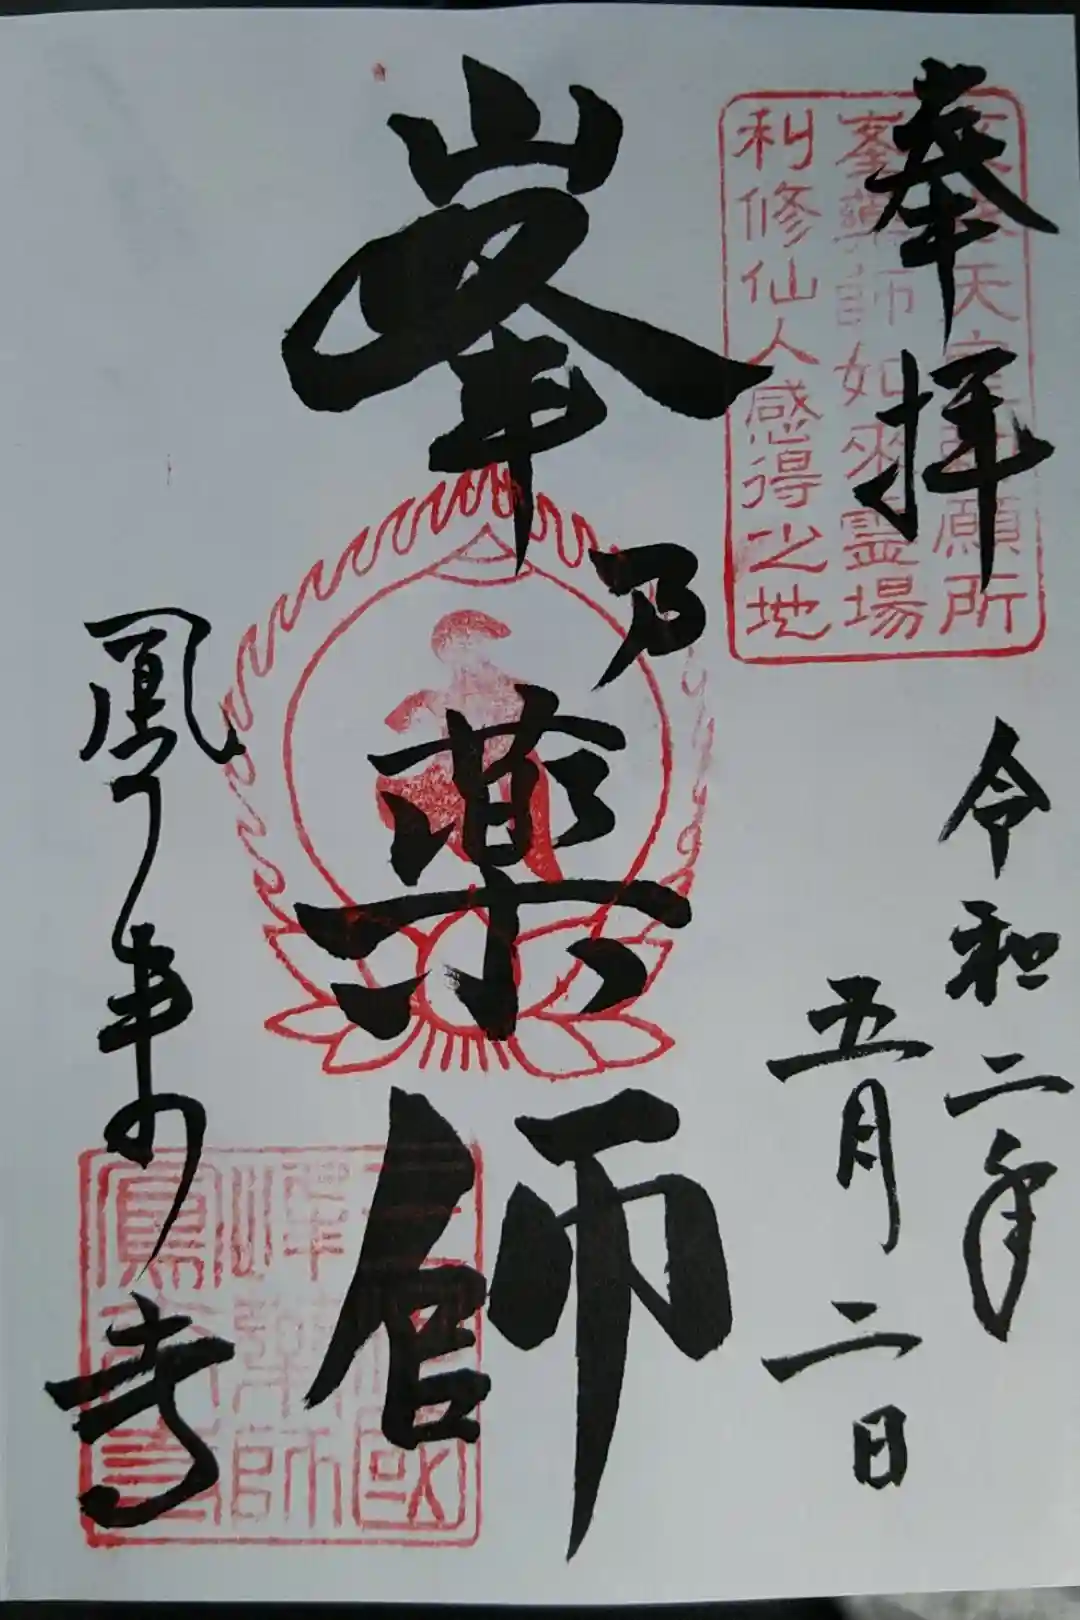 奉拝
天
願所
峯薬師如來霊場
利修仙人感得之地
令和二年
五月二日
峯乃薬師
鳳来寺
国
峰薬師
鳳来寺